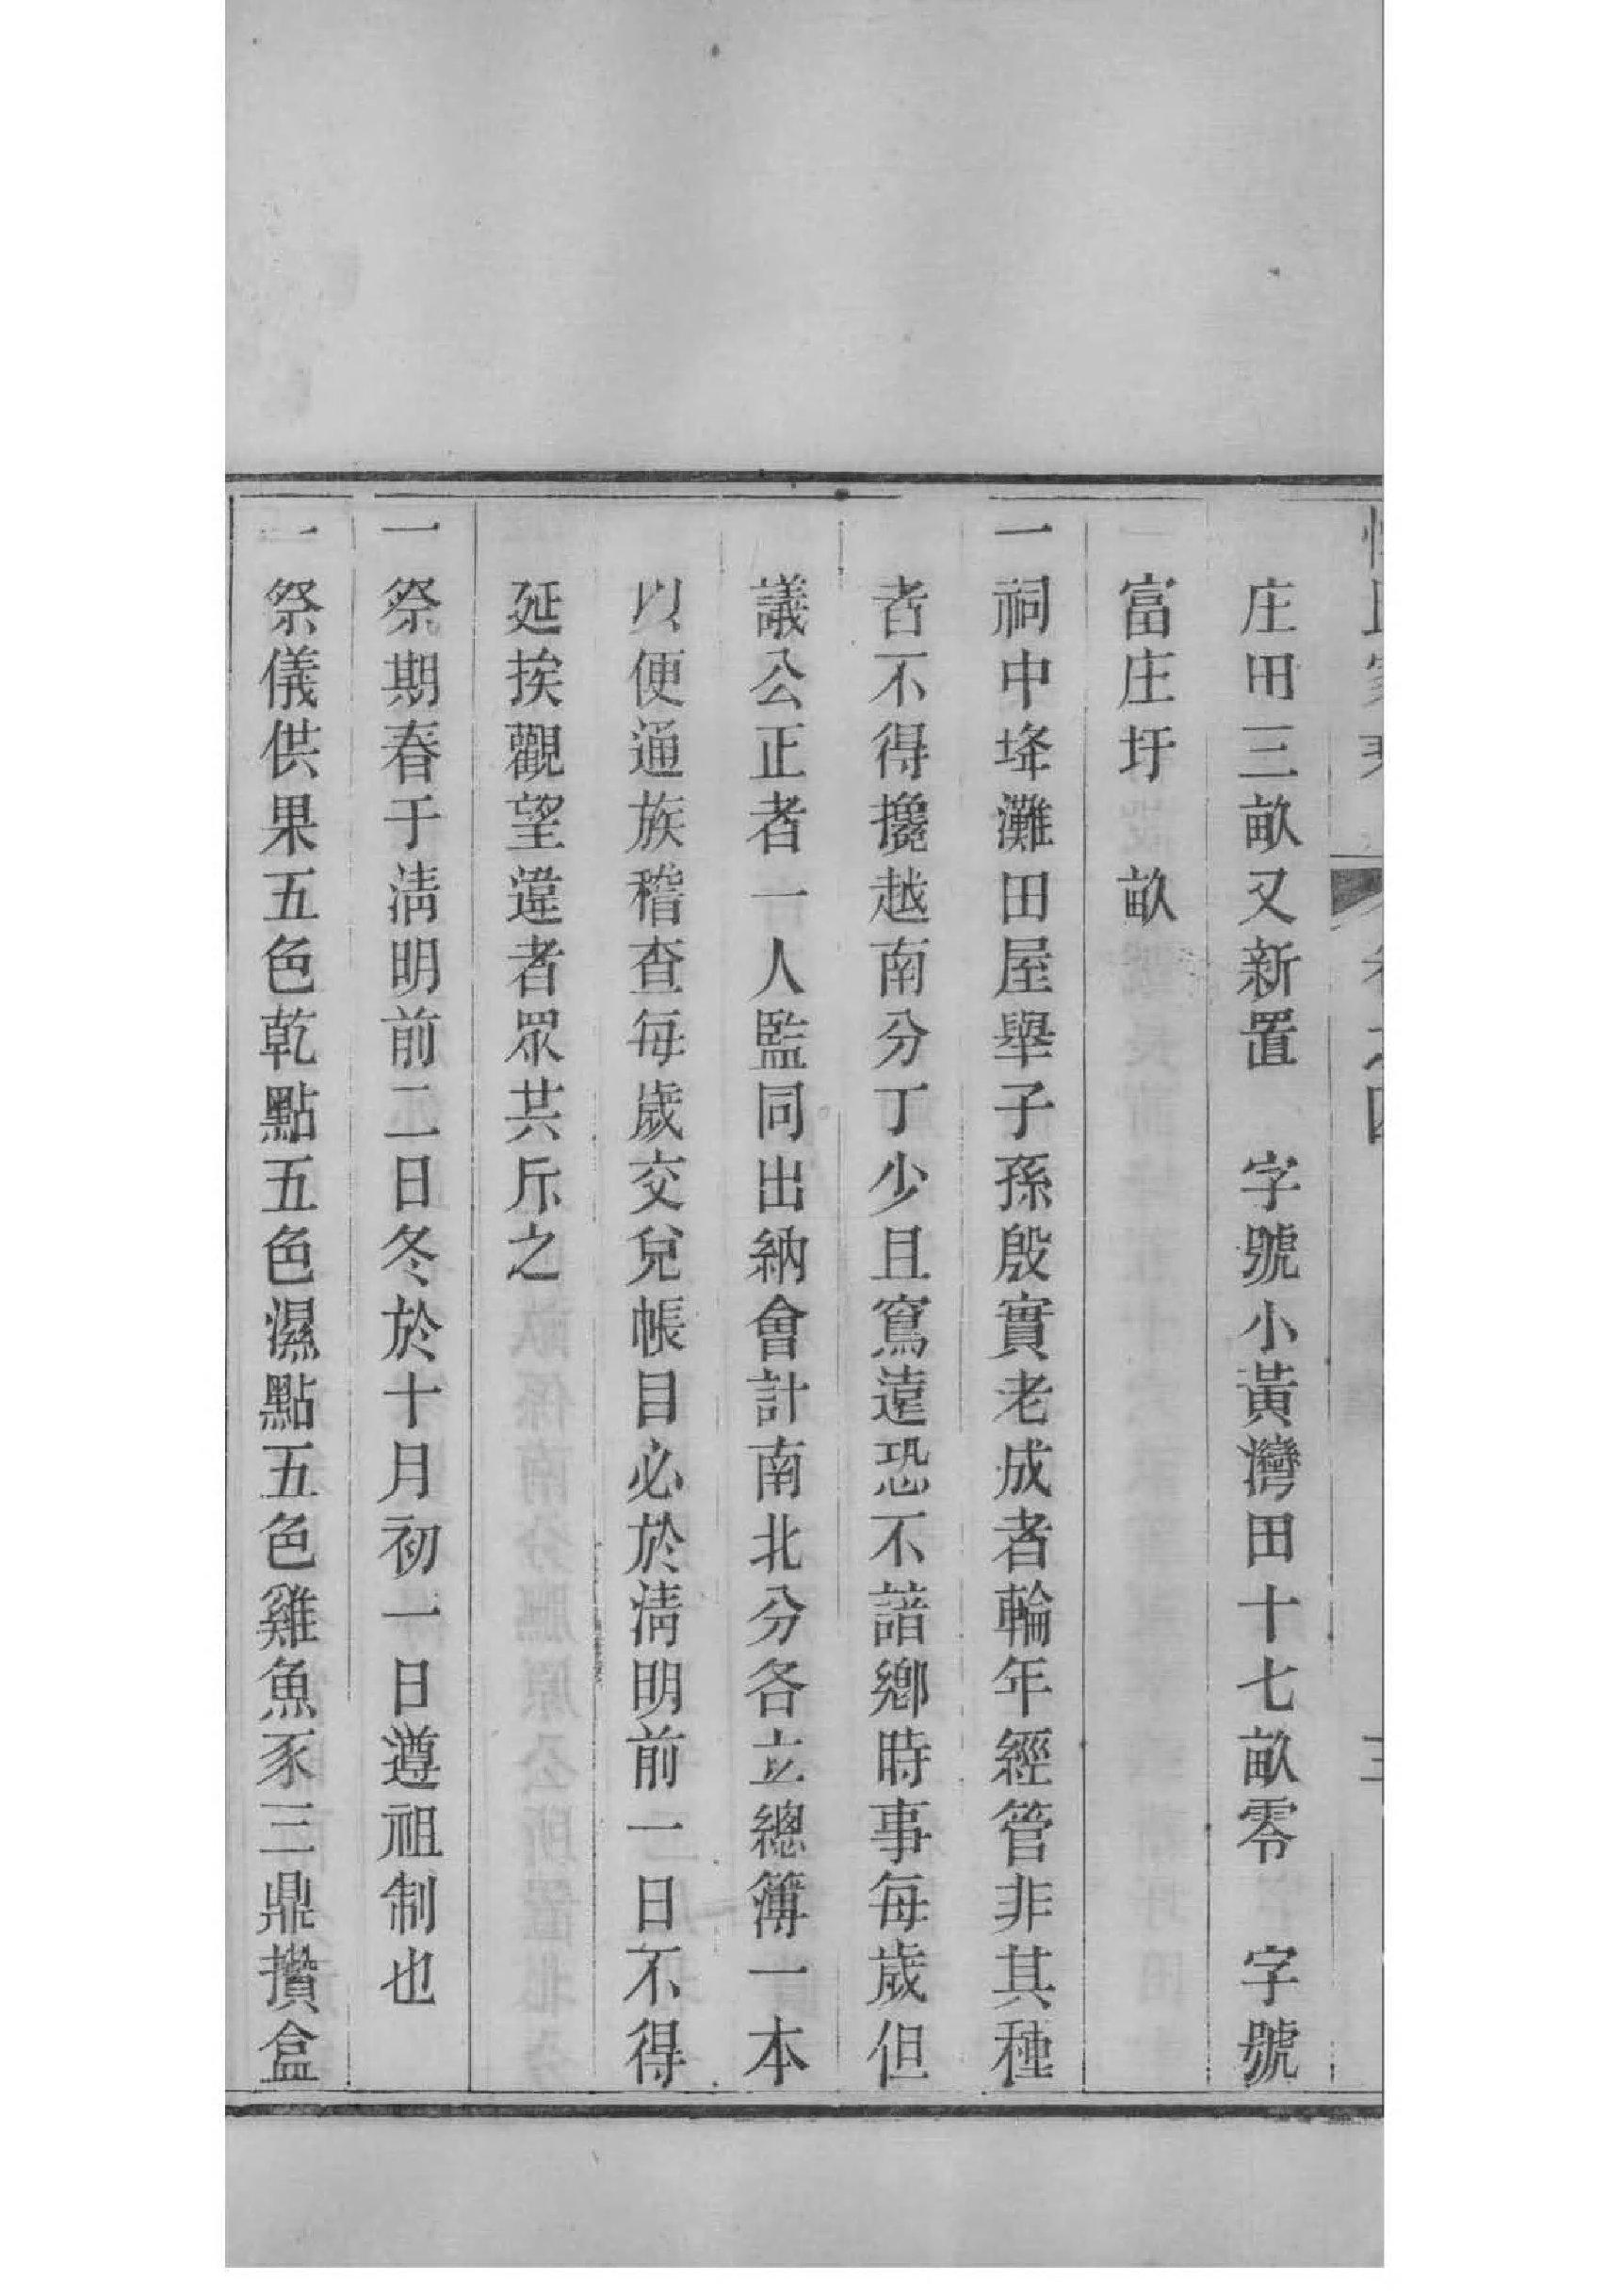 庄田三畝又新置　字號小黃灣田十七畝零　字號
富庄圩　畝
一祠中埄灘田屋舉子孫殷實老成者輪年經管非其種
者不得攙越南分丁少且窵遠恐不諳鄉時事每歲但
議公正者一人監同出納會計南北分各立總簿一本
以便通族稽查每歲交兌帳目必於淸明前一日不得
延挨觀望違者眾共斥之
一祭期春于淸明前二日冬於十月初一日遵祖制也
一祭儀供果五色乾點五色濕點五色雞魚豕三鼎攢盒